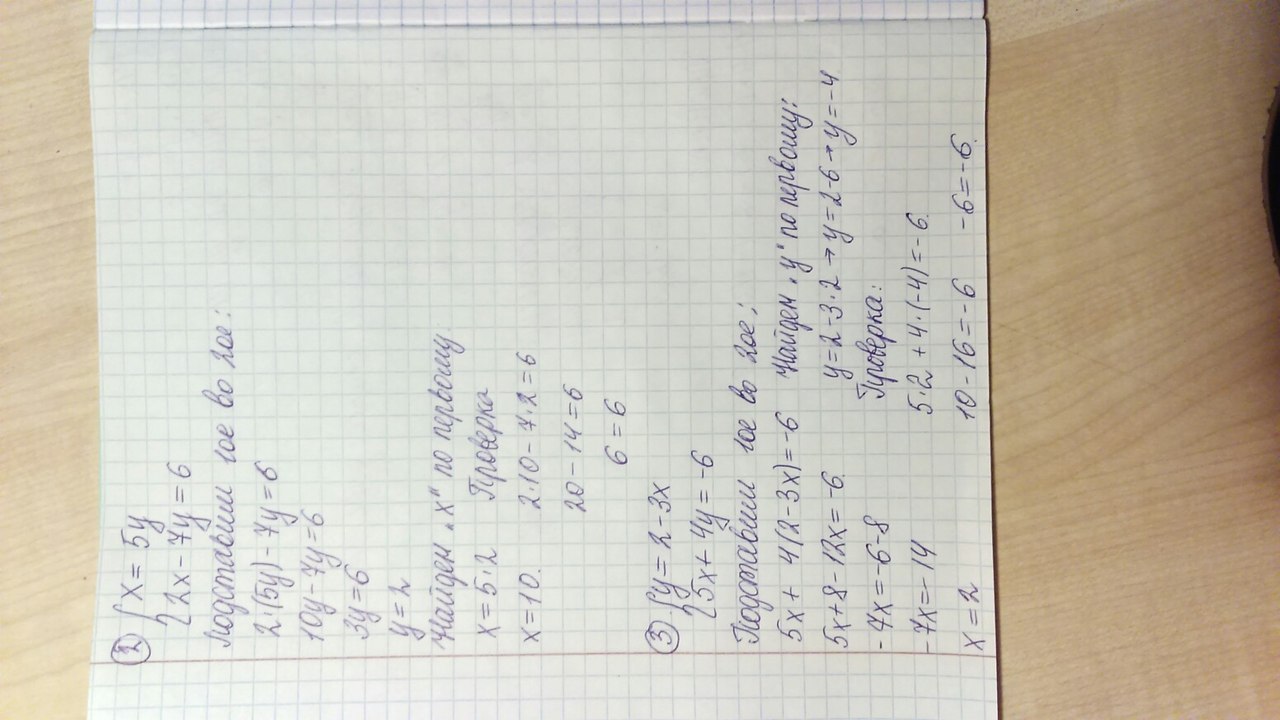 ② { x = 5y
2x - 7y = 6
Подставим 1ое во 2ое:
2·(5y) - 7y = 6
10y - 7y = 6
3y = 6
y = 2
Найдем „x" по первому.
x = 5·2 Проверка
x = 10. 2·10 - 7·2 = 6
20 - 14 = 6
6 = 6
③ { y = 2 - 3x
5x + 4y = -6
Подставим 1ое во 2ое:
5x + 4(2 - 3x) = -6 Найдем „y" по первому:
5x + 8 - 12x = -6. y = 2 - 3·2 → y = 2 - 6 → y = -4
-7x = -6 - 8 Проверка:
-7x = -14 5·2 + 4·(-4) = -6.
x = 2 10 - 16 = -6 -6 = -6.